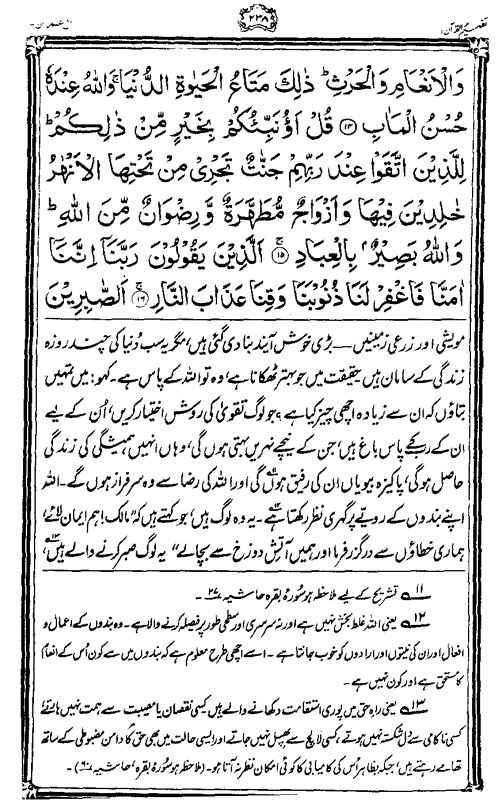 تفہیم القرآن ۱
۲۳۸
آل عمران ۳
وَالْاَنْعَامِ وَالْحَرْثِ ؕ ذٰلِكَ مَتَاعُ الْحَيٰوةِ الدُّنْيَا ۚ وَاللّٰهُ عِنْدَهٗ
حُسْنُ الْمَاٰبِ ۝۱۴ قُلْ اَؤُنَبِّئُكُمْ بِخَيْرٍ مِّنْ ذٰلِكُمْ ؕ
لِلَّذِيْنَ اتَّقَوْا عِنْدَ رَبِّهِمْ جَنّٰتٌ تَجْرِيْ مِنْ تَحْتِهَا الْاَنْهٰرُ
خٰلِدِيْنَ فِيْهَا وَاَزْوَاجٌ مُّطَهَّرَةٌ وَّرِضْوَانٌ مِّنَ اللّٰهِ ؕ
وَاللّٰهُ بَصِيْرٌۢ بِالْعِبَادِ ۝۱۵ۚ اَلَّذِيْنَ يَقُوْلُوْنَ رَبَّنَاۤ اِنَّنَاۤ
اٰمَنَّا فَاغْفِرْ لَنَا ذُنُوْبَنَا وَقِنَا عَذَابَ النَّارِ ۝۱۶ۚ اَلصّٰبِرِيْنَ
مویشی اور زرعی زمینیں — بڑی خوش آیند بنا دی گئی ہیں، مگر یہ سب دُنیا کی چند روزہ
زندگی کے سامان ہیں۔ حقیقت میں جو بہتر ٹھکانا ہے، وہ تو اللہ کے پاس ہے۔ کہو: میں تمہیں
بتاؤں کہ ان سے زیادہ اچھی چیز کیا ہے؟ جو لوگ تقویٰ کی روش اختیار کریں، اُن کے لیے
ان کے رب کے پاس باغ ہیں، جن کے نیچے نہریں بہتی ہوں گی، وہاں انہیں ہمیشگی کی زندگی
حاصل ہوگی، پاکیزہ بیویاں ان کی رفیق ہوں گی ۱۱ اور اللہ کی رضا سے وہ سرفراز ہوں گے۔ اللہ
اپنے بندوں کے رویّے پر گہری نظر رکھتا ہے ۱۲۔ یہ وہ لوگ ہیں، جو کہتے ہیں کہ ”مالک! ہم ایمان لائے،
ہماری خطاؤں سے درگزر فرما اور ہمیں آتشِ دوزخ سے بچا لے“ یہ لوگ صبر کرنے والے ہیں ۱۳،
۱۱؎ تشریح کے لیے ملاحظہ ہو سُورۂ بقرہ حاشیہ ۲۷۔
۱۲؎ یعنی اللہ غلط بخش نہیں ہے اور نہ سرسری اور سطحی طور پر فیصلہ کرنے والا ہے۔ وہ بندوں کے اعمال و
افعال اور ان کی نیتوں اور ارادوں کو خوب جانتا ہے۔ اسے اچھی طرح معلوم ہے کہ بندوں میں سے کون اُس کے انعام
کا مستحق ہے اور کون نہیں ہے۔
۱۳؎ یعنی راہِ حق میں پوری استقامت دکھانے والے ہیں۔ کسی نقصان یا مصیبت سے ہمت نہیں ہارتے،
کسی ناکامی سے دل شکستہ نہیں ہوتے، کسی لالچ سے پھسل نہیں جاتے اور ایسی حالت میں بھی حق کا دامن مضبوطی کے ساتھ
تھامے رہتے ہیں، جبکہ بظاہر اُس کی کامیابی کا کوئی امکان نظر نہ آتا ہو۔ (ملاحظہ ہو سُورۂ بقرہ، حاشیہ ۶۰)۔